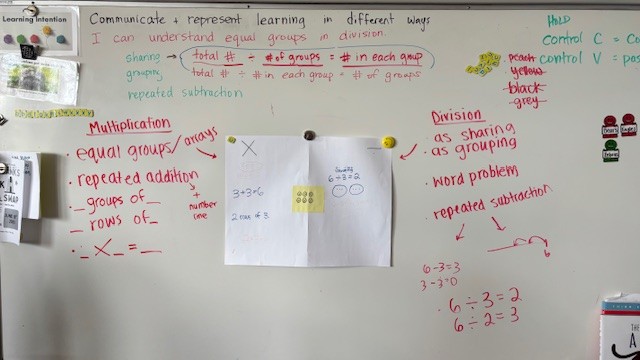 Learning Intention
Communicate + represent learning in different ways
I can understand equal groups in division.
sharing → total # ÷ # of groups = # in each group
grouping total # ÷ # in each group = # of groups
repeated subtraction
peach
yellow
black
grey
HOLD
control C = Co
control V = pas
Multiplication
• equal groups/arrays
• repeated addition
+ number line
• _ groups of _
• _ rows of _
• _ X _ = _
X
3+3=6
2 rows of 3
6÷3=2
Division
• as sharing
• as grouping
• word problem
• repeated subtraction
6
6-3=3
3-3=0
• 6÷3=2
6÷2=3
THE
A